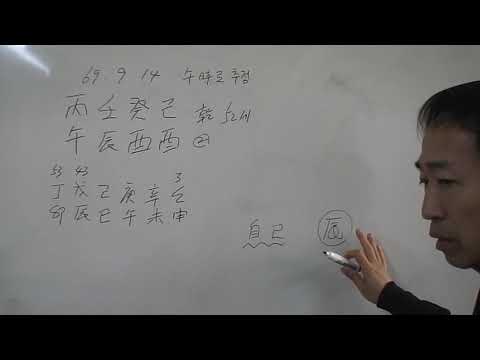 69. 9 14 午時로 추정
丙 壬 癸 己 乾 52세
午 辰 酉 酉
53 43 3
丁 戊 己 庚 辛 壬
卯 辰 巳 午 未 申
自己